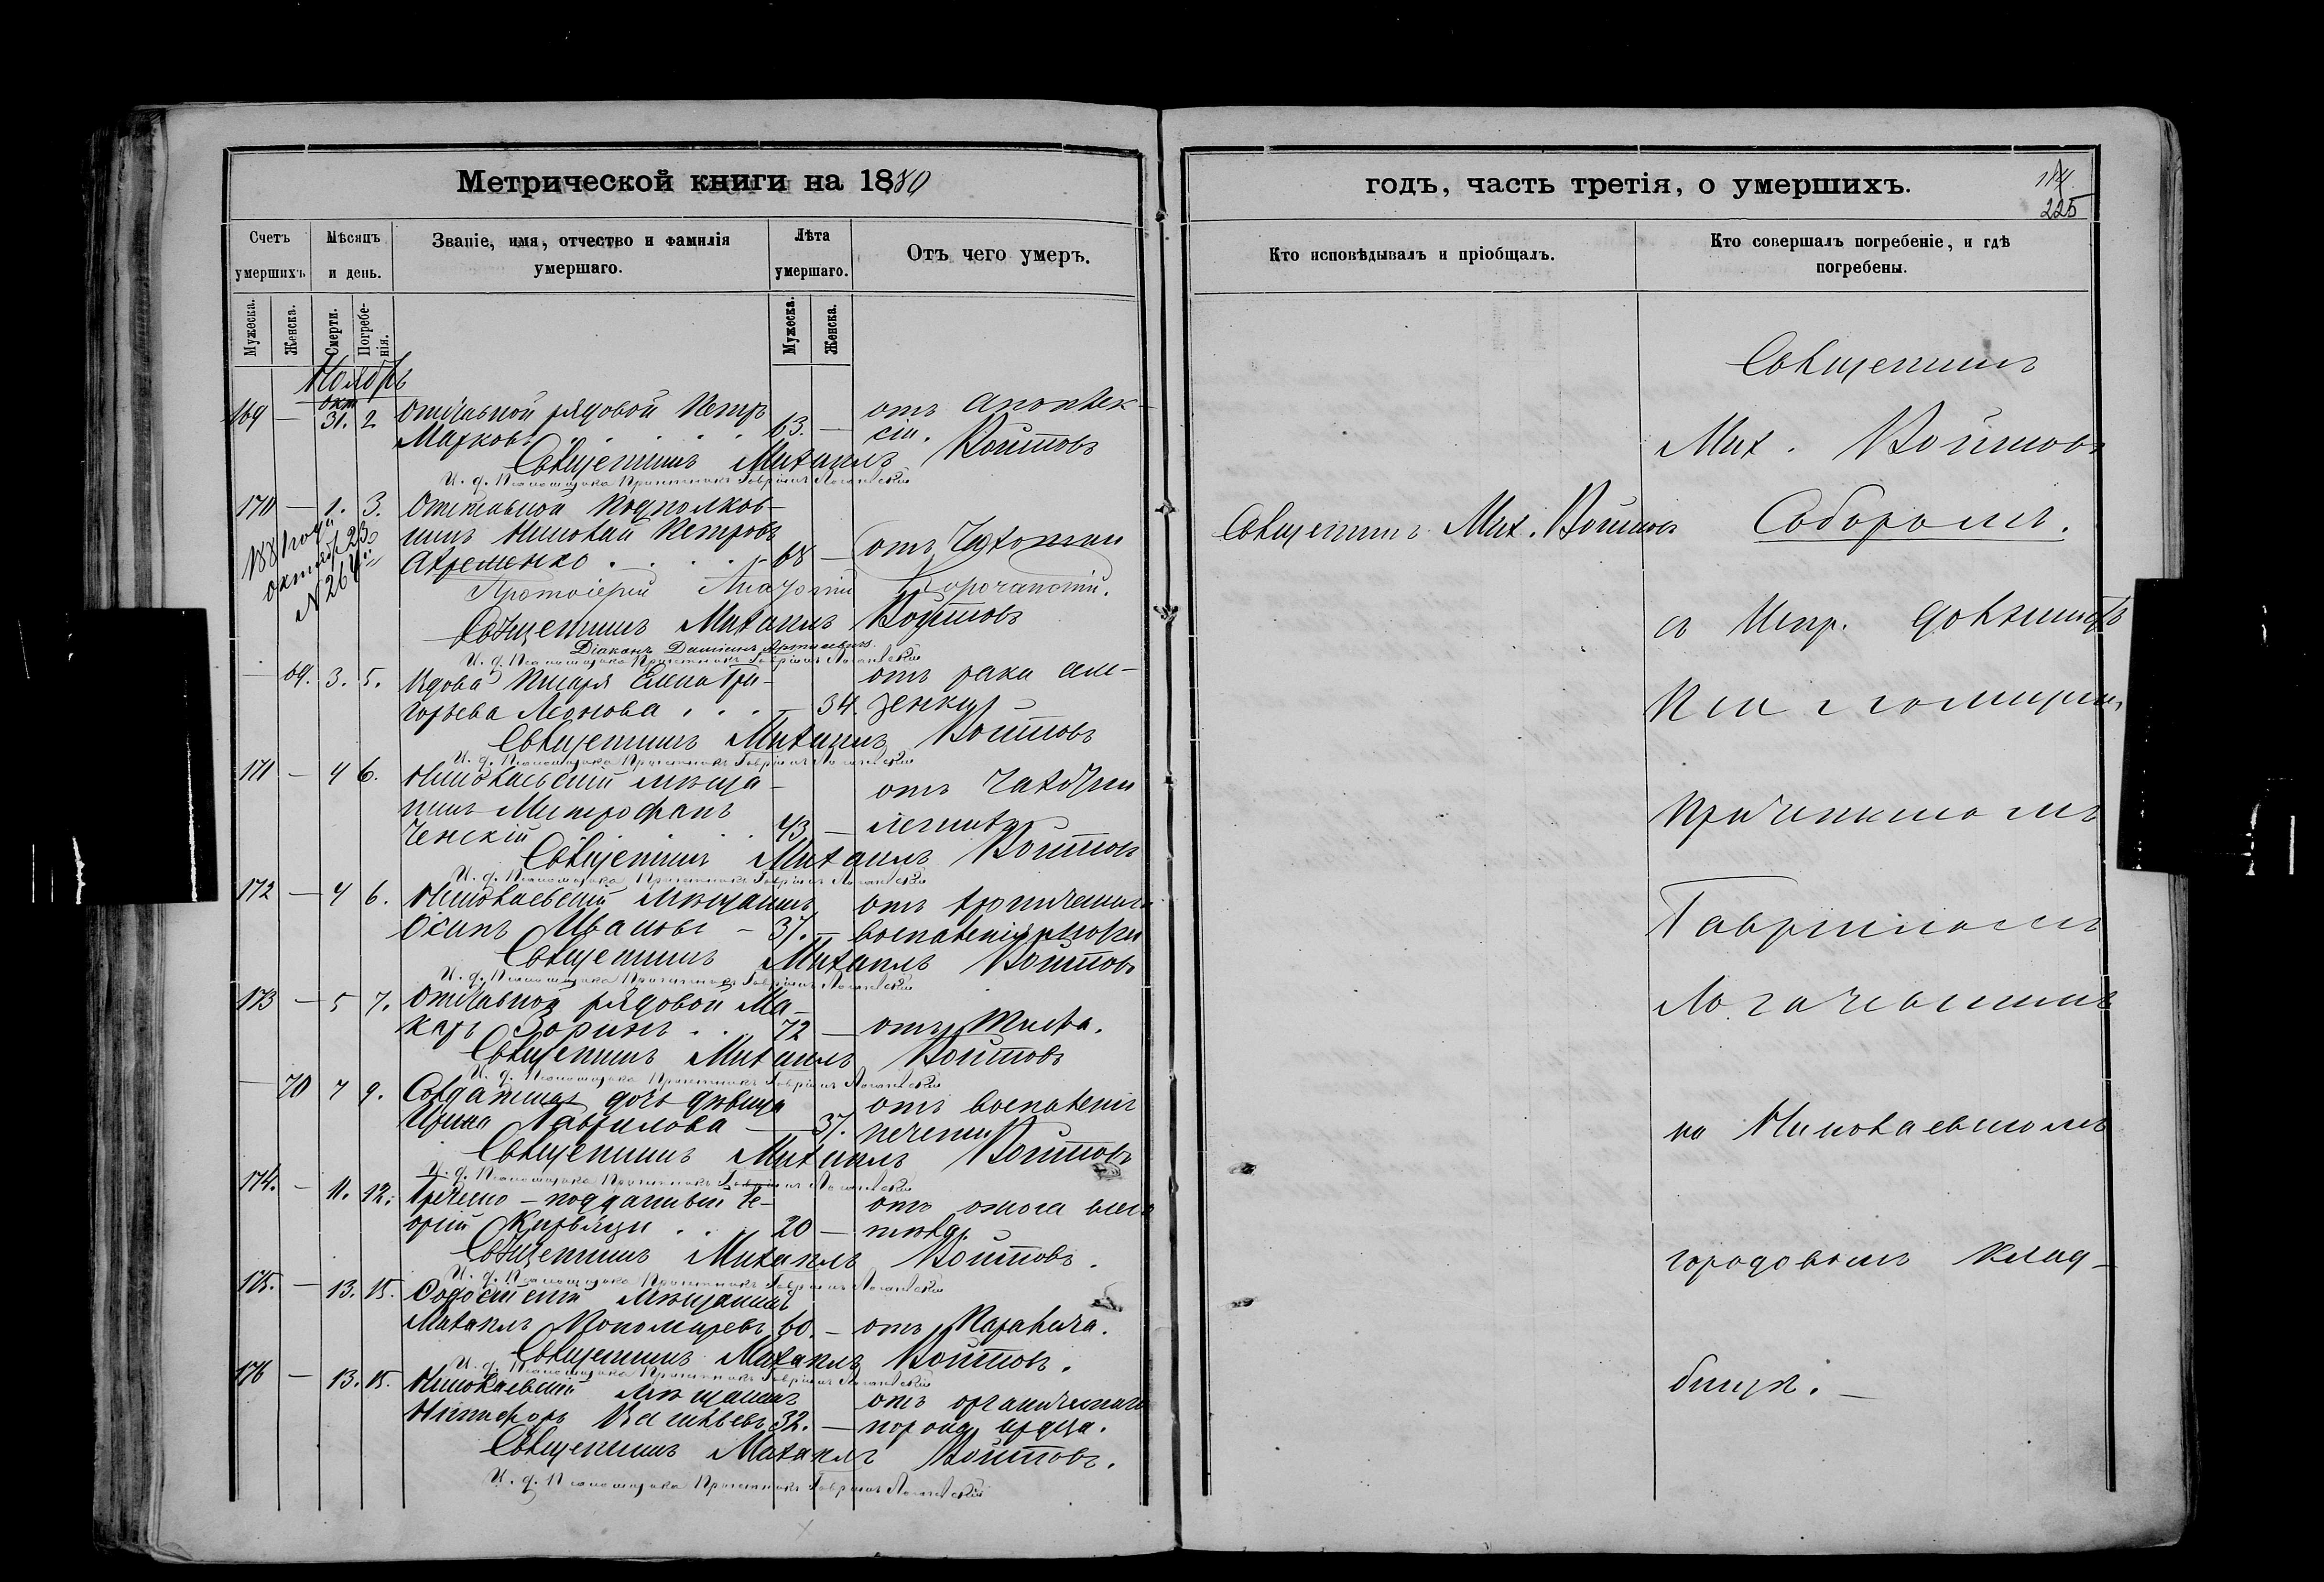 Метрической книги на 1880
годъ, часть третія, о умершихъ.
225
Счетъ умершихъ
Мѣсяцъ и день.
Званіе, имя, отчество и фамилія умершаго.
Лѣта умершаго.
Отъ чего умеръ.
Кто исповѣдывалъ и пріобщалъ.
Кто совершалъ погребеніе, и гдѣ погребены.
Мужеска.
Женска.
Смерти.
Погребенія.
Мужеска.
Женска.
Ноябрь
169 — окт 31. 2 Отставной рядовой Петръ отъ апоплек-
Марковъ 63. — сіи.
Священникъ Михаилъ Войтовъ
И. д. Псаломщика Причетникъ Гавріилъ
170 — 1. 3. Отставной Подполков-
никъ Николай Петровъ
68 — отъ Чахотки
1881 года
октября 23
N 264
Протоіерей
Священникъ Михаилъ Войтовъ
Діаконъ Даміанъ
И. д. Псаломщика Причетникъ Гавріилъ
— 69. 3. 5. Вдова Писаря Елена Гри- отъ рака
горьева Леонова — 34.
Священникъ Михаилъ Войтовъ
И. д. Псаломщика Причетникъ Гавріилъ
171 — 4 6. Николаевскій мѣща- отъ чахотки
нинъ Митрофанъ
43. — легкихъ
Священникъ Михаилъ Войтовъ
И. д. Псаломщика Причетникъ Гавріилъ
172 — 4 6. Николаевскій мѣщанинъ отъ хроническаго
Осипъ Ивановъ — 37. — воспаленія
Священникъ Михаилъ Войтовъ
И. д. Псаломщика Причетникъ Гавріилъ
173 — 5 7. Отставной рядовой Ма-
каръ Зоринъ 72 — отъ тифа.
Священникъ Михаилъ Войтовъ
И. д. Псаломщика Причетникъ Гавріилъ
— 70 7 9. Солдатская дочь дѣвица отъ воспаленія
Ирина Гаврилова — 37. печени
Священникъ Михаилъ Войтовъ
И. д. Псаломщика Причетникъ Гавріилъ
174. — 11. 12. Греческо-подданный Ге- отъ
оргій 20 —
Священникъ Михаилъ Войтовъ.
И. д. Псаломщика Причетникъ Гавріилъ
175. — 13. 15. мѣщанинъ
Михаилъ Пономаревъ 60. — отъ Паралича.
Священникъ Михаилъ Войтовъ.
И. д. Псаломщика Причетникъ Гавріилъ
176 — 13. 15. Николаевскій мѣщанинъ отъ органическаго
Никифоръ Васильевъ 32. — порока сердца.
Священникъ Михаилъ Войтовъ.
И. д. Псаломщика Причетникъ Гавріилъ
Священникъ Мих. Войтовъ
Священникъ
Мих. Войтовъ
Соборомъ.
съ Испр. должность
Псаломщика
Причетникомъ
Гавріиломъ
Логачевскимъ
на Николаевскомъ
городовомъ Клад-
бищѣ. —